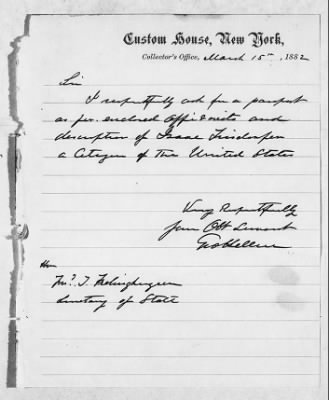 Custom House, New York,
Collector's Office, March 15th, 1882
Sir
I respectfully ask for a passport
as per enclosed affidavits and
description of Isaac
a Citizen of the United States
Very Respectfully
your Obt Servant
Hon
Secretary of State